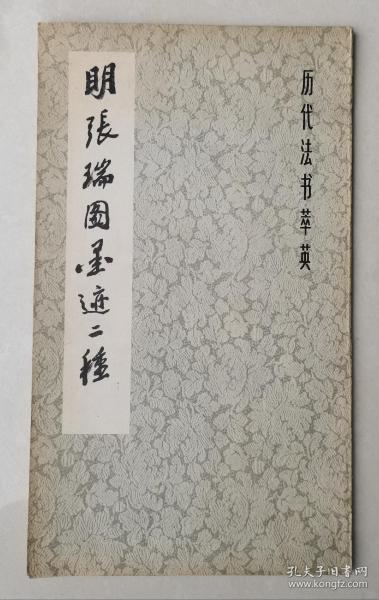 历代法书萃英
明張瑞图墨迹二種
孔夫子旧书网